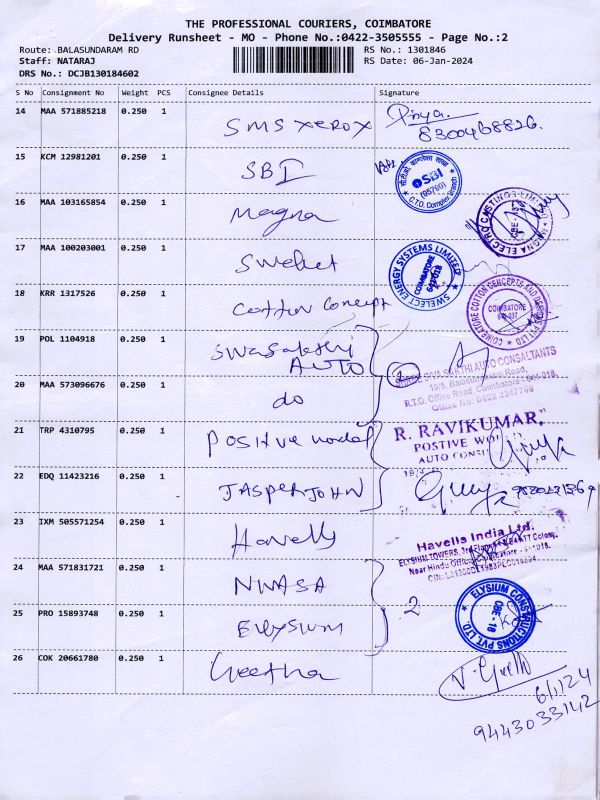 THE PROFESSIONAL COURIERS, COIMBATORE
Delivery Runsheet - MO - Phone No.:0422-3505555 - Page No.:2
Route: BALASUNDARAM RD
RS No.: 1301846
Staff: NATARAJ
RS Date: 06-Jan-2024
DRS No.: DCJB130184602
S No Consignment No Weight PCS Consignee Details Signature
14 MAA 571885218 0.250 1 SMS XEROX Priya. 8300468826.
15 KCM 12981201 0.250 1 SBI
SBI
(05796)
C.T.O. Complex Branch
16 MAA 103165854 0.250 1 Magna
MAGNA ELECTRO CASTINGS LIMITED
17 MAA 100203001 0.250 1 Swelect
SWELECT ENERGY SYSTEMS LIMITED
COIMBATORE
641-018
18 KRR 1317526 0.250 1 Cotton Concept
COIMBATORE COTTON CONCEPTS AND DESIGNS PVT LTD
COIMBATORE
641-037
19 POL 1104918 0.250 1 Swasakthi
AUTO
2
SIVA SAKTHI AUTO CONSULTANTS
19/5, Balasundaram Road,
R.T.O. Office Road, Coimbatore - 641-018.
Office No: 0422 2247766
20 MAA 573096676 0.250 1 do
21 TRP 4310795 0.250 1 Positive world
R. RAVIKUMAR,
POSTIVE
AUTO
22 EDQ 11423216 0.250 1 JASPER JOHN
23 IXM 505571254 0.250 1 Havells
Havells India Ltd.
ELYSIUM TOWERS, 3rd Floor, Colony,
Near Hindu Office, Coimbatore - 641018.
24 MAA 571831721 0.250 1 NWASA
2
25 PRO 15893748 0.250 1 Ellysium
ELYSIUM CONSTRUCTIONS PVT. LTD.
CBE - 18
26 COK 20661780 0.250 1 Geetha
V. Geetha
6/1/24
9443033142